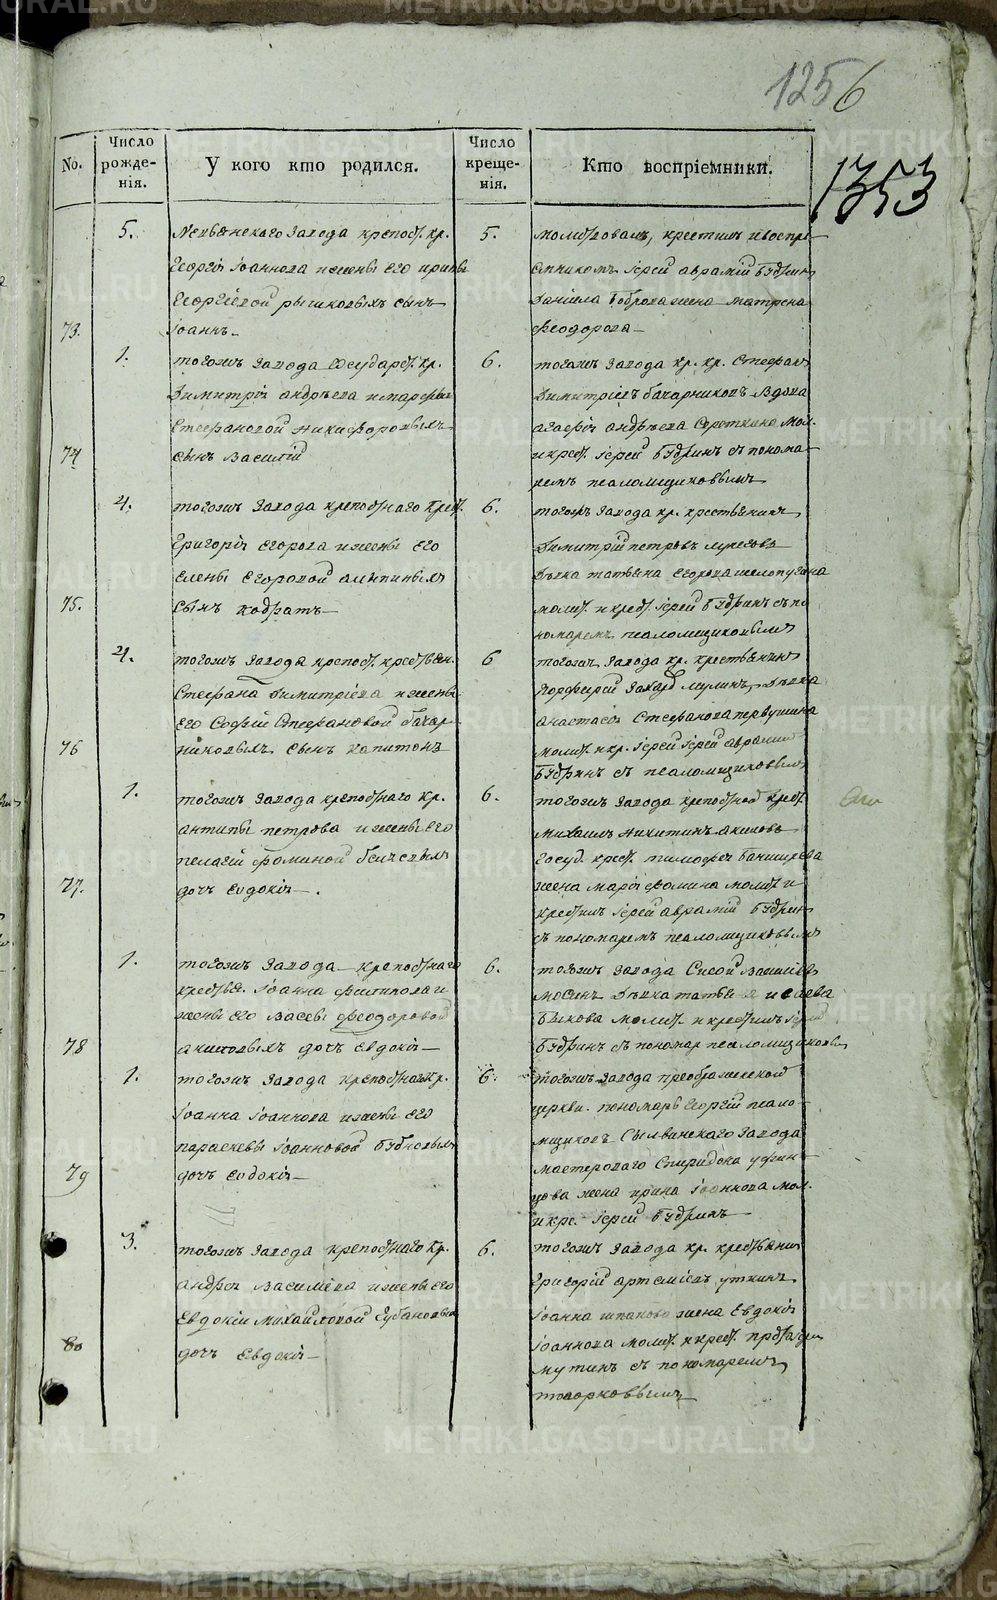 1256
1353
No.
Число рожденія.
У кого кто родился.
Число крещенія.
Кто воспріемники.
73.
5.
Невьянскаго Завода крепост. кр.
Георгія Іоаннова и жены Его ирины
Георгіевой рычковыхъ сынъ
Іоаннъ
5.
молитвовалъ, крестилъ и воспре-
Іерей аврамій
Даніила Боброва жена Матрена
Феодорова
74
1.
тогожъ Завода Государст. кр.
Димитрія андрѣева и марфы
Стефановой никифоровыхъ
сынъ Василій
6.
тогожъ Завода кр. кр. Стефанъ
Димитріевъ бочарниковъ вдова
агафія андрѣева мол.
и крест. Іерей съ понома-
ремъ псаломщиковымъ
75.
4.
тогожъ Завода крепостнаго крест.
Григорія Егорова и жены Его
Елены Егоровой
сынъ кодратъ
6.
тогожъ Завода кр. крестьянинъ
Димитрій петровъ
Дѣвка татьяна Егорова шелопугова
молит. и крест. Іерей съ по
номаремъ псаломщиковымъ
76
4.
тогожъ Завода крепост. крестьян.
Стефана Димитріева и жены
Его Софіи Стефановой бочар-
никовыхъ сынъ капитонъ
6
тогожъ Завода кр. крестьянинъ
Порфирій Захаръ мулинъ, Дѣвка
анастасія Стефанова первушина
молит. и кр. Іерей Іерей аврамій
съ псаломщиковымъ
77.
1.
тогожъ Завода крепостнаго кр.
антипы петрова и жены Его
пелагіи фоминой
дочь Евдокія
6.
тогожъ Завода крепостной крест.
Михаилъ никитинъ акилово
Госуд. крест. тимофея
жена марія фомина молит. и
крестилъ Іерей аврамій
съ пономаремъ псаломщиковымъ
78
1.
тогожъ Завода крепостнаго
крестья. Іоанна филипова и
жены Его Васевы феодоровой
акиловыхъ дочь Евдокія
6.
тогожъ Завода Сисой Василіевъ
мосинъ Дѣвка татьяна исаева
Быкова молит. и крестилъ Іерей
съ пономар псаломщиковымъ
79
1.
тогожъ Завода крепостнаго кр.
Іоанна Іоаннова и жены Его
параскевы Іоанновой бубновыхъ
дочь Евдокія
6.
тогожъ Завода преображенской
церкви пономарь Георгій псало-
мщиковъ Сылвинскаго Завода
мастероваго Спиридона уфин-
цова жена ирина Іоаннова мол.
и кре. Іерей
80
3.
тогожъ Завода крепостнаго кр.
андрея Василіева и жены его
Евдокіи михайловой Губановыхъ
дочь Евдокія
6.
тогожъ Завода кр. крестьянинъ
Григорій артеміевъ уткинъ
Іоанна жена Евдокія
Іоаннова молит. и крест.
мутинъ съ пономаремъ
топорковымъ
METRIKI.GASO-URAL.RU